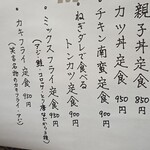 親子丼定食 850
カツ丼定食 950
チキン南蛮定食 900
ねぎダレで食べる
トンカツ定食 900
ミックスフライ定食 950
カキフライ定食 920